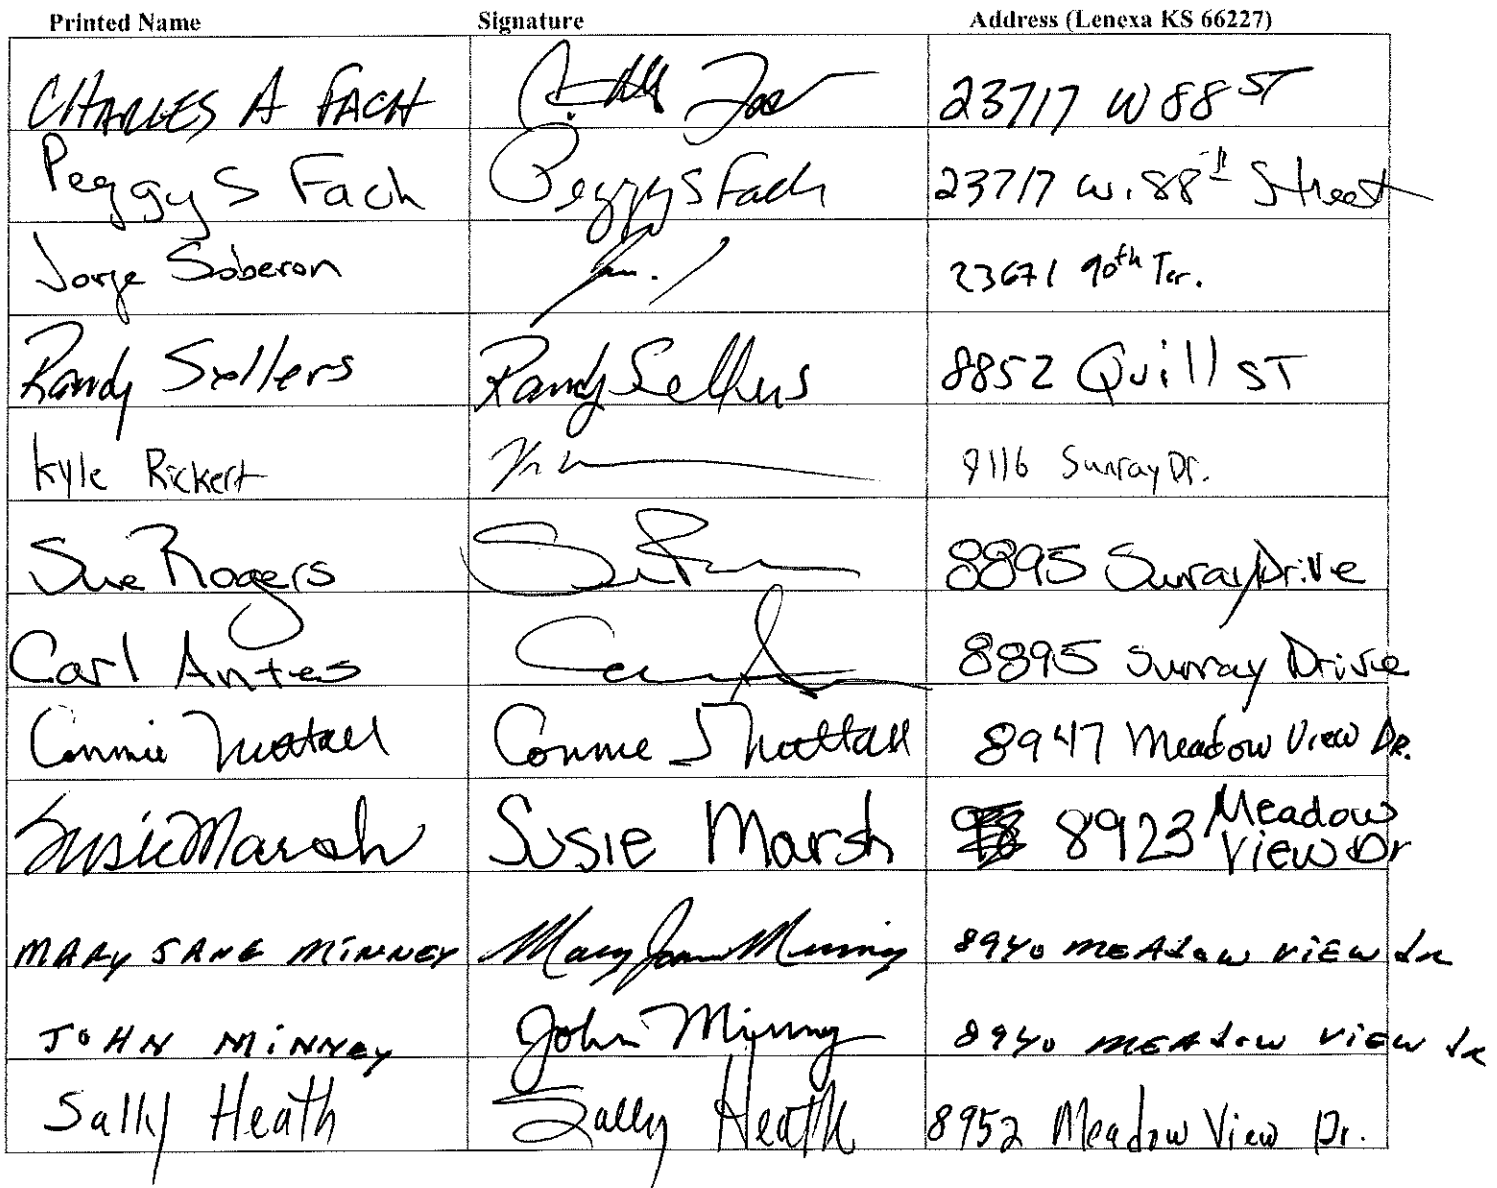 Printed Name Signature Address (Lenexa KS 66227)
CHARLES A FACH 23717 W 88 ST
Peggy S Fach Peggy S Fach 23717 W. 88th Street
Jorge Soberon 23671 90th Ter.
Randy Sellers Randy Sellers 8852 Quill ST
Kyle Rickert 9116 Sunray Dr.
Sue Rogers 8895 Sunray Drive
Carl Antes 8895 Sunray Drive
Connie Nuttall Connie J Nuttall 8947 Meadow View Dr.
Susie Marsh Susie Marsh 8923 Meadow View Dr
MARY JANE MINNEY Mary Jane Minney 8940 MEADOW VIEW dr
JOHN MINNEY John Minney 8940 MEADOW VIEW dr
Sally Heath Sally Heath 8952 Meadow View Dr.